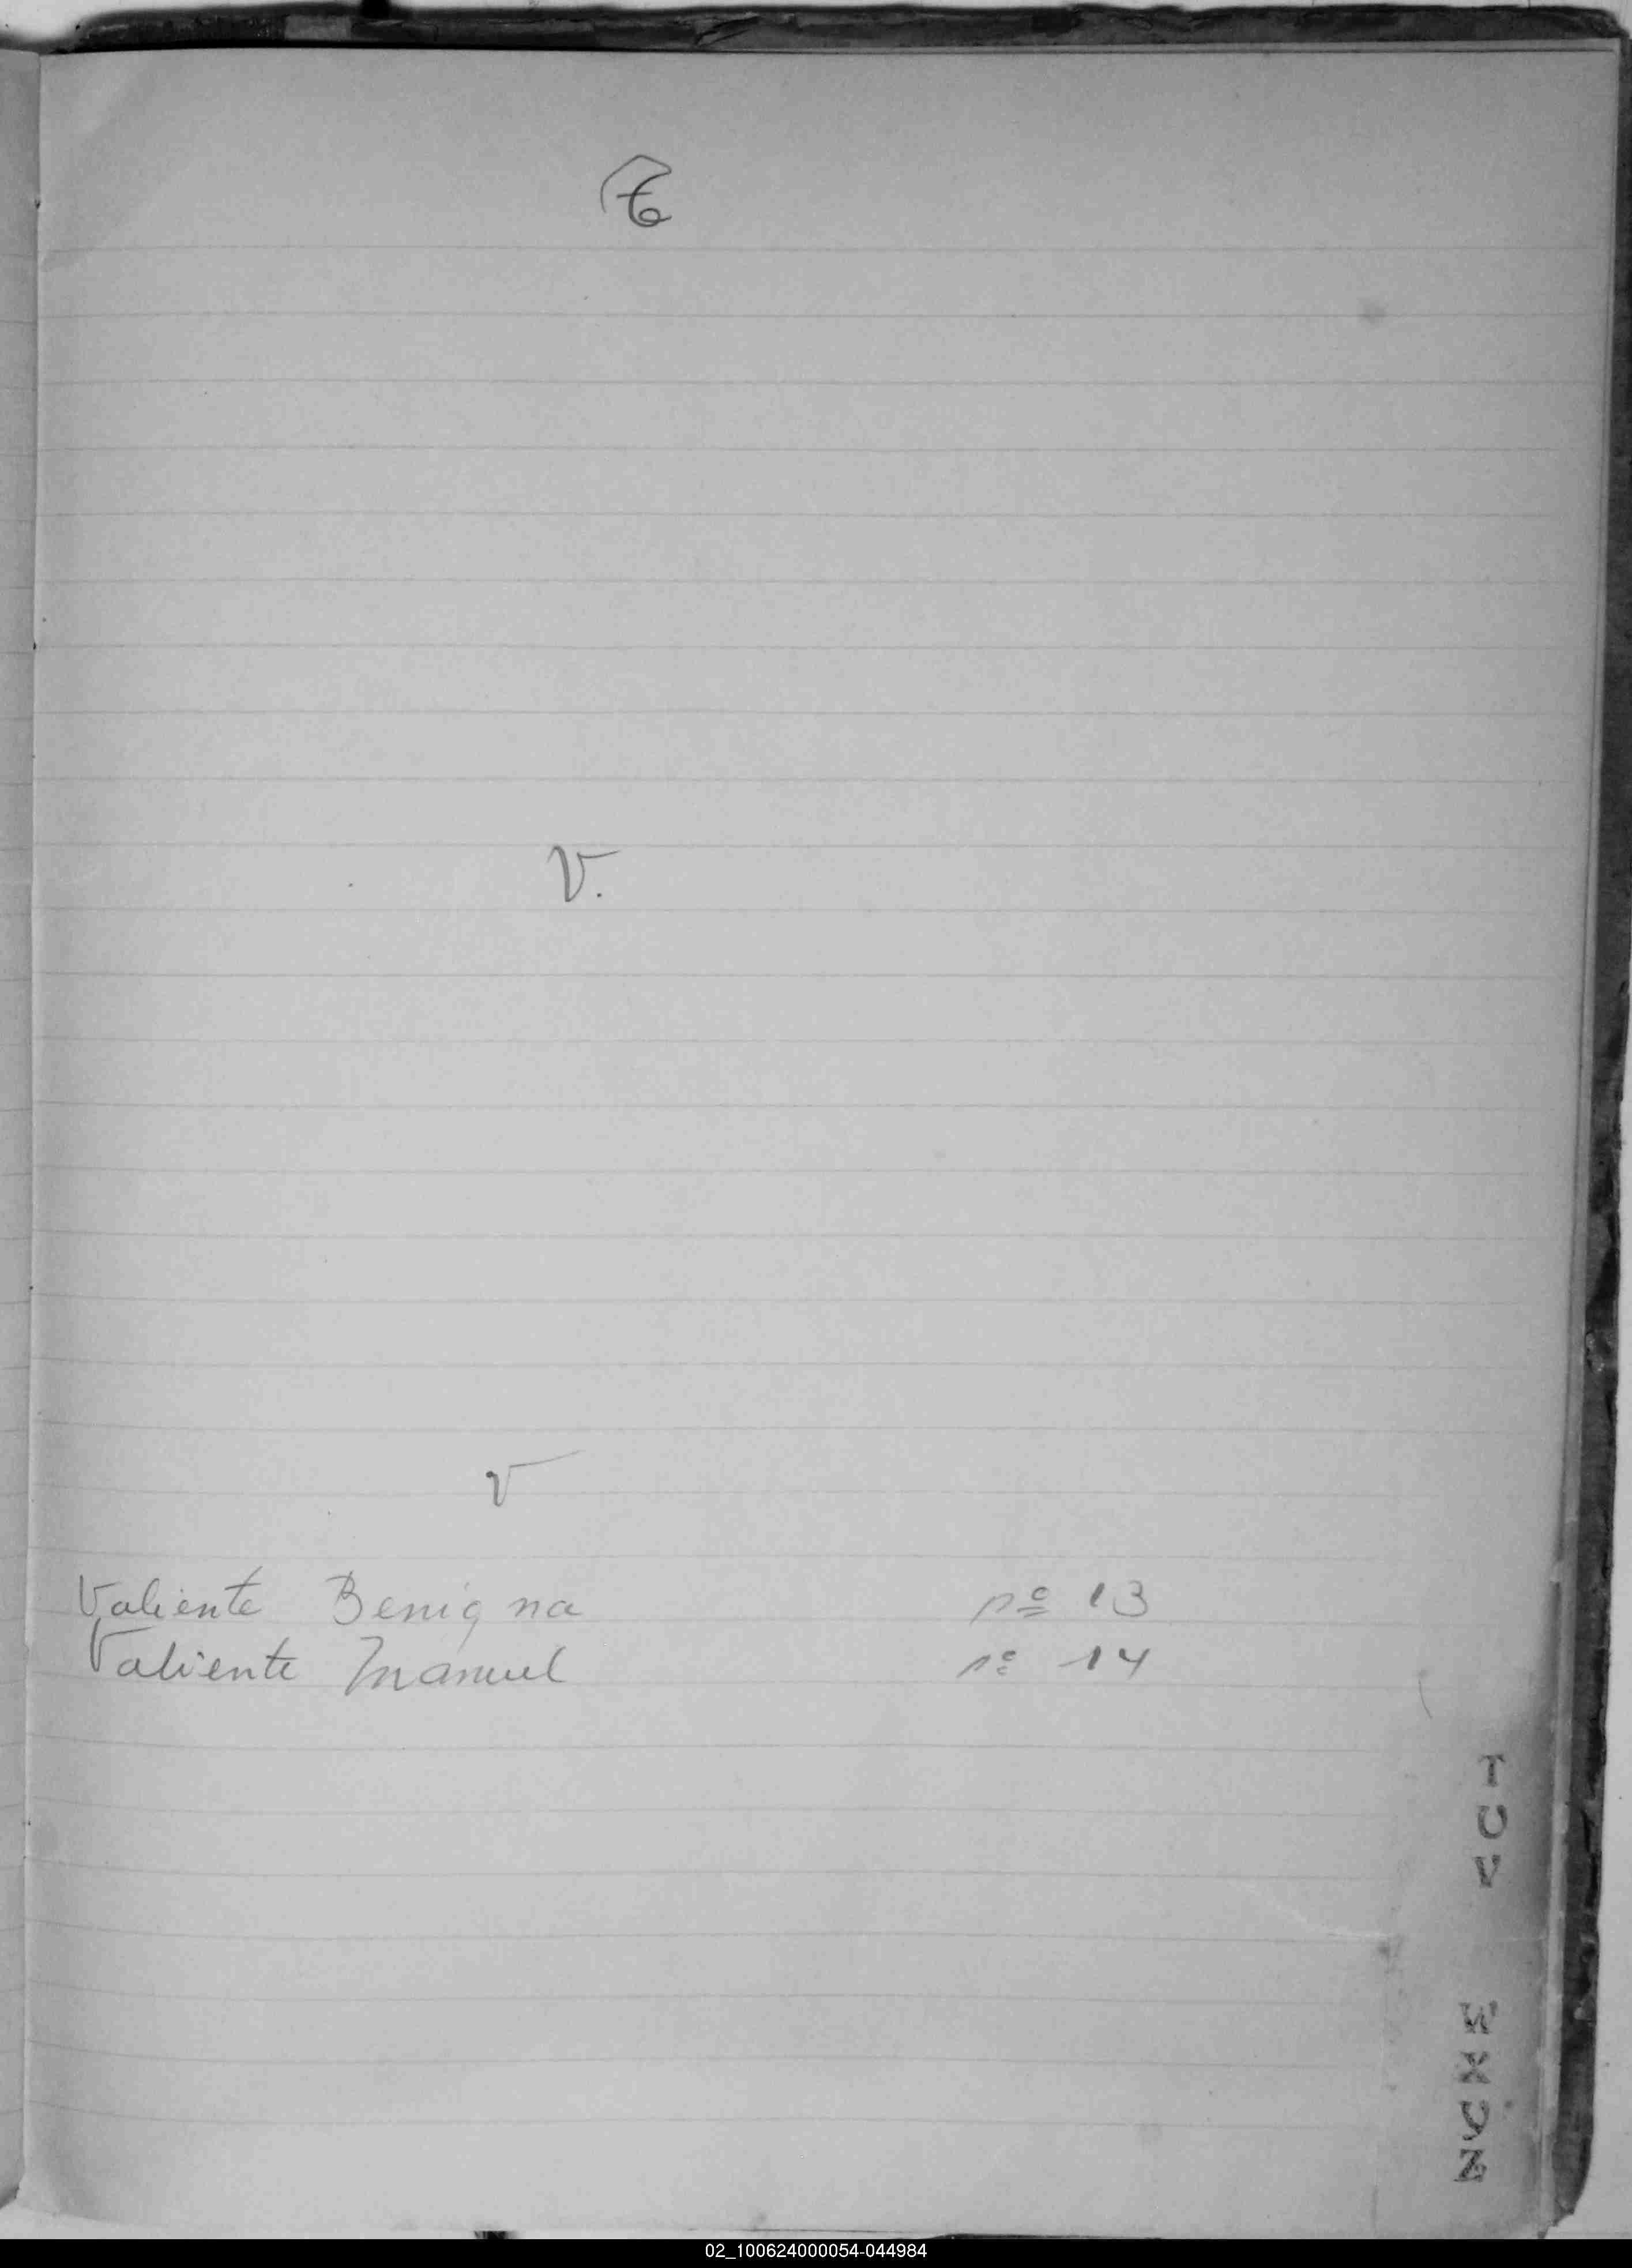 T
V.
V
Valiente Benigna nº 13
Valiente Manuel nº 14
T
U
V
W
X
Y
Z
02_100624000054-044984